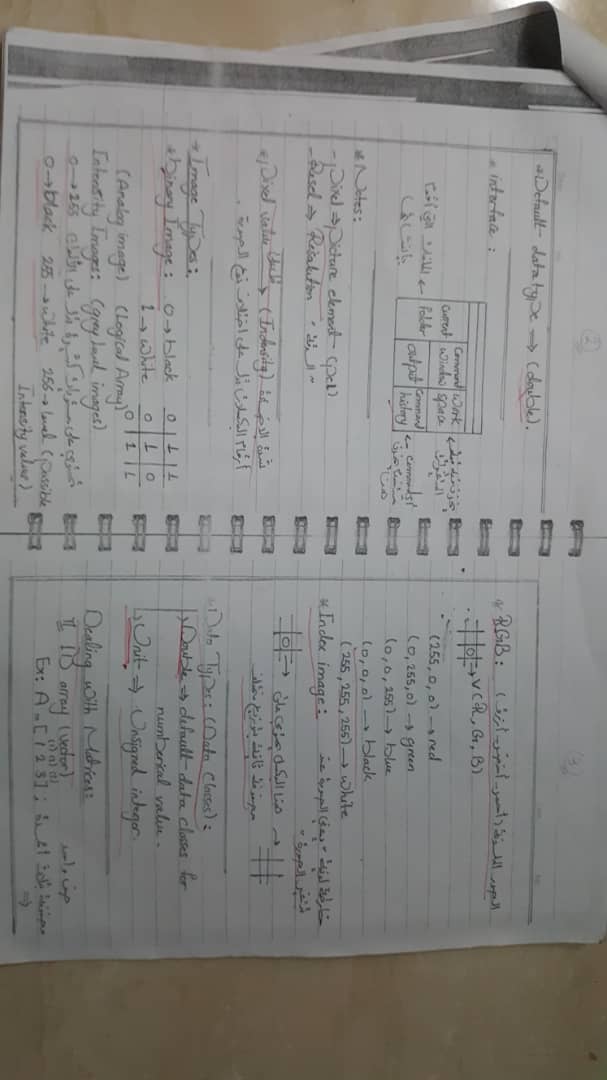 (2)
* Default data type → (double).
* interface :
current folder
Command window
Work space
output
command history
يخزن فيه
← الملفات التي أقوم بإنشائها
أي command ← هنا
* Notes:
- pixel ⇒ picture element (pel)
- Resel ⇒ Resalution " الدقة "
* pixel value → (Indensity) شدة الاضاءة
أرقام البكسلات تدل على اختلاف نوع الصورة .
* Image Types:
* binary Image : 0 → black
1 → white
0 1 1
0 1 0
0 1 1
(Analog image) (Logical Array)
Intensity Images: (grey level images)
0 → 255 تحتوي على مستويات كثيرة تدل على الألوان
0 → black 255 → white 256 → level (possible
Intensity values)
(3)
* RGB : الصور الملونة (أحمر، أخضر، أزرق)
→ V(R, G, B)
(255, 0, 0) → red
(0, 255, 0) → green
(0, 0, 255) → blue
(0, 0, 0) → black
(255, 255, 255) → white
* Index image : خارطة لونية " يعني الصورة عند
الصورة "
→ هنا البكسل يحتوي على →
مصفوفة ثانية بتوزيع مختلف
Data Types: (Data Classes):
Double ⇒ default data classes for
numberical value.
Unit ⇒ Unsigned integer.
Dealing with Matrices:
1] 1D array (vector) صف واحد
(1) (2) (3)
Ex: A = [1 2 3] ; مصفوفة بثلاث أعمدة
⇒